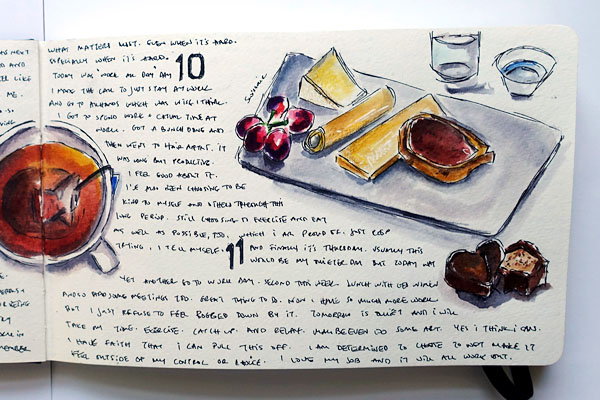 WHAT MATTERS MOST. EVEN WHEN IT'S HARD.
ESPECIALLY WHEN IT'S HARD.
TODAY WAS WORK ALL DAY DAY
10
I MADE THE CALL TO JUST STAY AT WORK
AND GO TO WHICH WAS NICE I THINK.
I GOT TO SPEND WORK + CASUAL TIME AT
WORK. GOT A BUNCH DONE AND
THEN WENT TO HAIR APPT. IT
WAS LONG BUT PRODUCTIVE.
I FEEL GOOD ABOUT IT.
I'VE ALSO BEEN CHOOSING TO BE
KIND TO MYSELF AND OTHERS THROUGH THIS
LONG PERIOD. STILL CHOOSING TO EXERCISE AND EAT
AS WELL AS POSSIBLE, TOO. WHICH I AM PROUD OF. JUST KEEP
TRYING, I TELL MYSELF.
11
AND FINALLY IT'S THURSDAY. USUALLY THIS
WOULD BE MY QUIETER DAY BUT TODAY WAS
YET ANOTHER GO TO WORK DAY. SECOND THIS WEEK. LUNCH WITH WHEN
AND SO AWESOME MEETING TOO. GREAT THING TO DO. NOW I HAVE SO MUCH MORE WORK
BUT I JUST REFUSE TO FEEL BOGGED DOWN BY IT. TOMORROW IS QUIET AND I WILL
TAKE MY TIME. EXERCISE. CATCH UP. AND RELAX. MAYBE EVEN DO SOME ART. YES I THINK I CAN.
I HAVE FAITH THAT I CAN PULL THIS OFF. I AM DETERMINED TO CHOOSE TO NOT MAKE IT
FEEL OUTSIDE OF MY CONTROL OR CHOICE. I LOVE MY JOB AND IT WILL ALL WORK OUT.